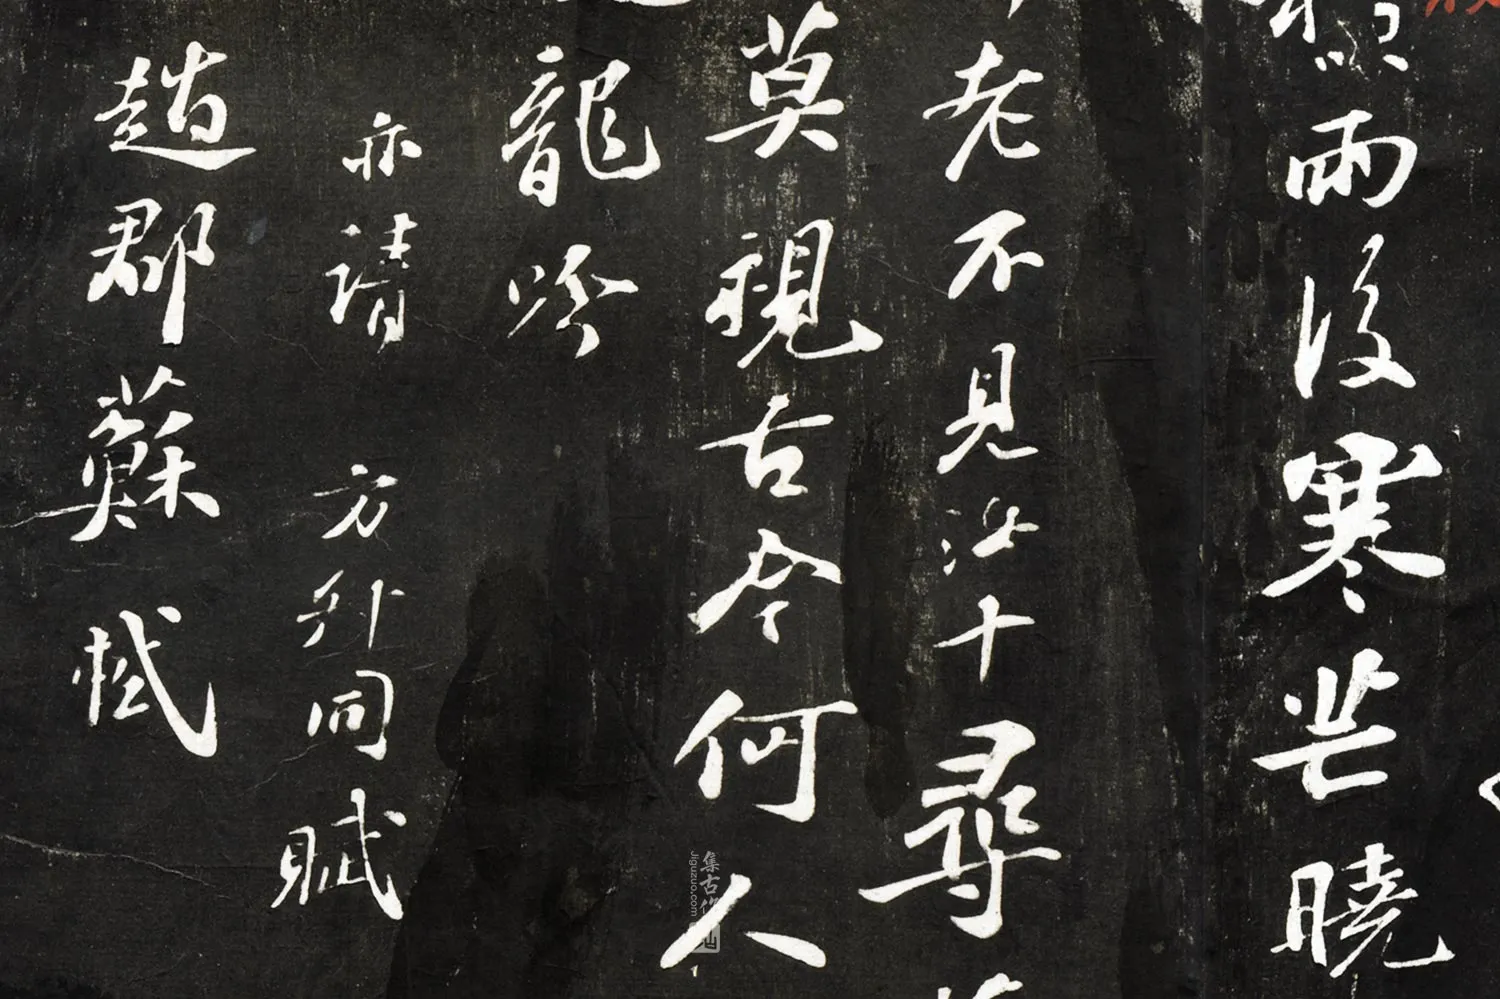 雨後寒芒曉
老不見十尋
莫視古今何人
龍吟
亦請 方外同賦
趙郡蘇軾
集古
jiguzuo.com